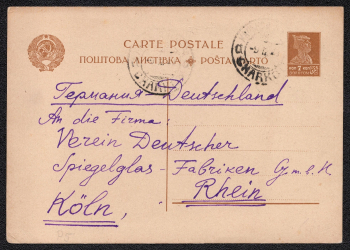 CARTE POSTALE
ПОШТОВА ЛИСТІВКА ★ POŠTAKARTO
Германия Deutschland
An die Firma:
Verein Deutscher
Spiegelglas-Fabriken G.m.b.H.
Köln, Rhein